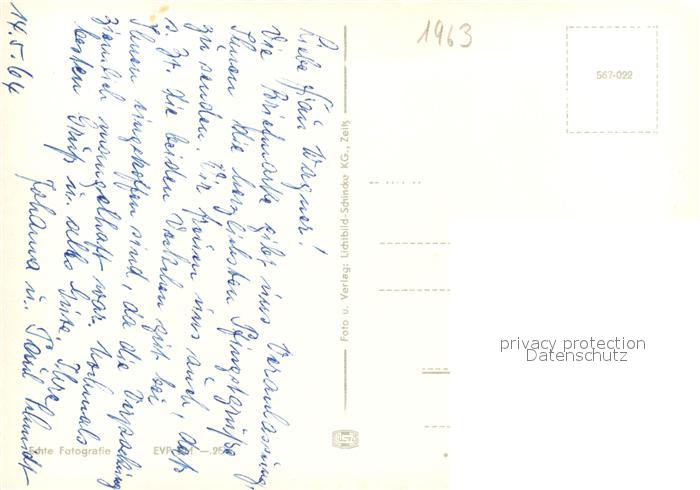 14.5.64
Liebe Frau Wagner!
Die Briefmarke gibt uns Veranlassung,
Ihnen die herzlichsten Pfingstgrüße
zu senden. Wir freuen uns auch, daß
s. Zt. die beiden gut bei
Ihnen eingetroffen sind, da die Verpackung
ziemlich mangelhaft war. Nochmals
besten Gruß u. alles Gute. Ihre
Johanna u. Paul Schmidt
Echte Fotografie
EVP —,25
Foto u. Verlag: Lichtbild-Schincke KG., Zeitz
1963
567-022
privacy protection
Datenschutz